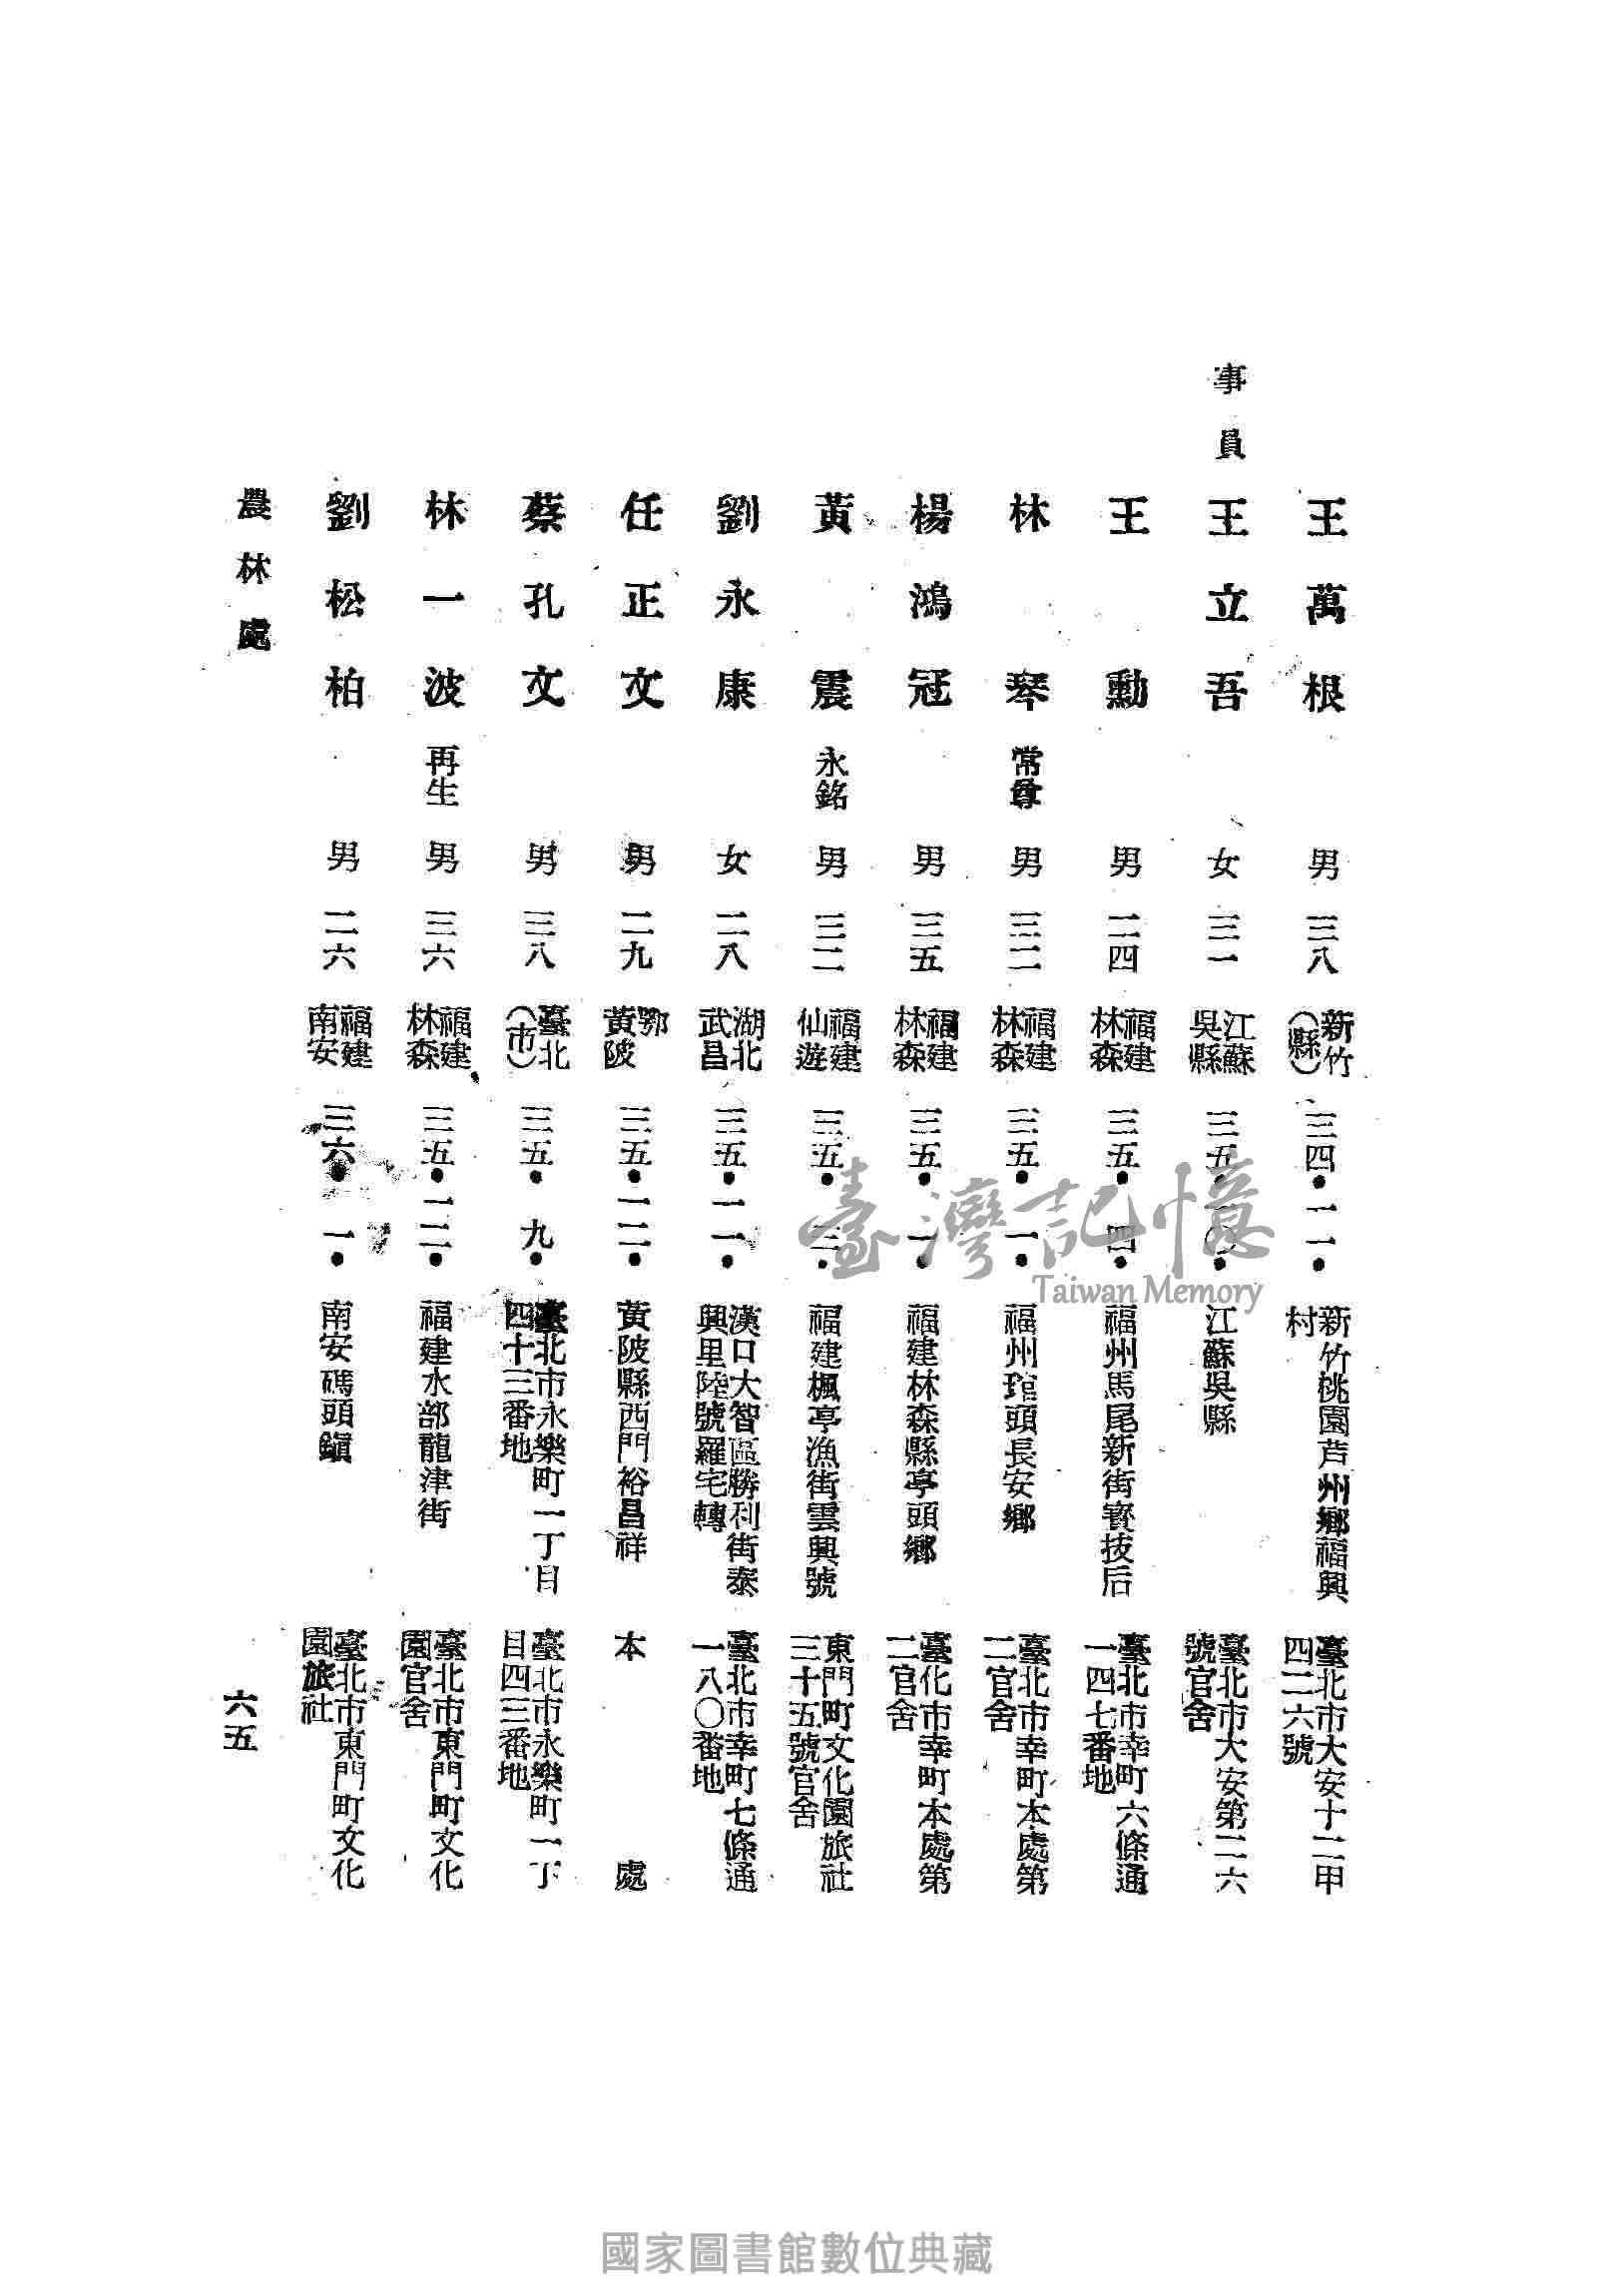 王萬根 男 三八 新竹(縣) 三四•一一• 新竹桃園芦州鄉福興村 臺北市大安十二甲四二六號
事員 王立吾 女 三一 江蘇吳縣 三五•一〇• 江蘇吳縣 臺北市大安第二六號官舍
王勳 男 二四 福建林森 三五•四• 福州馬尾新街 技后 臺北市幸町六條通一四七番地
林琴 常尊 男 三二 福建林森 三五•一• 福州琯頭長安鄉 臺北市幸町本處第二官舍
楊鴻冠 男 三五 福建林森 三五•一• 福建林森縣亭頭鄉 臺化市幸町本處第二官舍
黃震 永銘 男 三二 福建仙遊 三五•三• 福建楓亭漁街雲興號 東門町文化園旅社三十五號官舍
劉永康 女 二八 湖北武昌 三五•一一• 漢口大智區勝利街泰興里陸號羅宅轉 臺北市幸町七條通一八〇番地
任正文 男 二九 鄂黃陂 三五•一二• 黃陂縣西門裕昌祥 本處
蔡孔文 男 三八 臺北(市) 三五•九• 臺北市永樂町一丁目四十三番地 臺北市永樂町一丁目四三番地
林一波 再生 男 三六 福建林森 三五•一二• 福建水部龍津街 臺北市東門町文化園官舍
劉松柏 男 二六 福建南安 三六•一• 南安碼頭鎭 臺北市東門町文化園旅社
農林處 六五
臺灣記憶
Taiwan Memory
國家圖書館數位典藏